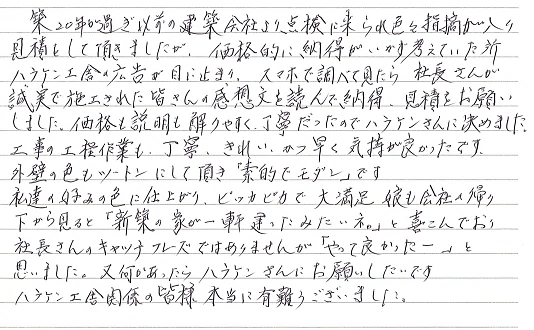 築20年が過ぎ以前の建築会社より点検に来られ色々指摘が入り
見積をして頂きましたが、価格的に納得がいかず考えていた所
ハラケン工舎の広告が目に止まり、スマホで調べて見たら 社長さんが
誠実で施工された皆さんの感想文を読んで、納得、見積をお願い
しました、価格も説明も解りやすく、丁寧だったのでハラケンさんに決めました
工事の工程作業も、丁寧、きれい、かつ早く気持が良かったです。
外壁の色もツートンにして頂き「素的でモダン」です
私達の好みの色に仕上がり、ピッカピカで大満足 娘も会社の帰り
下から見ると「新築の家が一軒建ったみたいネ。」と喜こんでおり
社長さんのキャッチフレーズではありませんが「やって良かったー」と
思いました。又何かあったらハラケンさんにお願いしたいです
ハラケン工舎関係の皆様 本当に有難うございました。